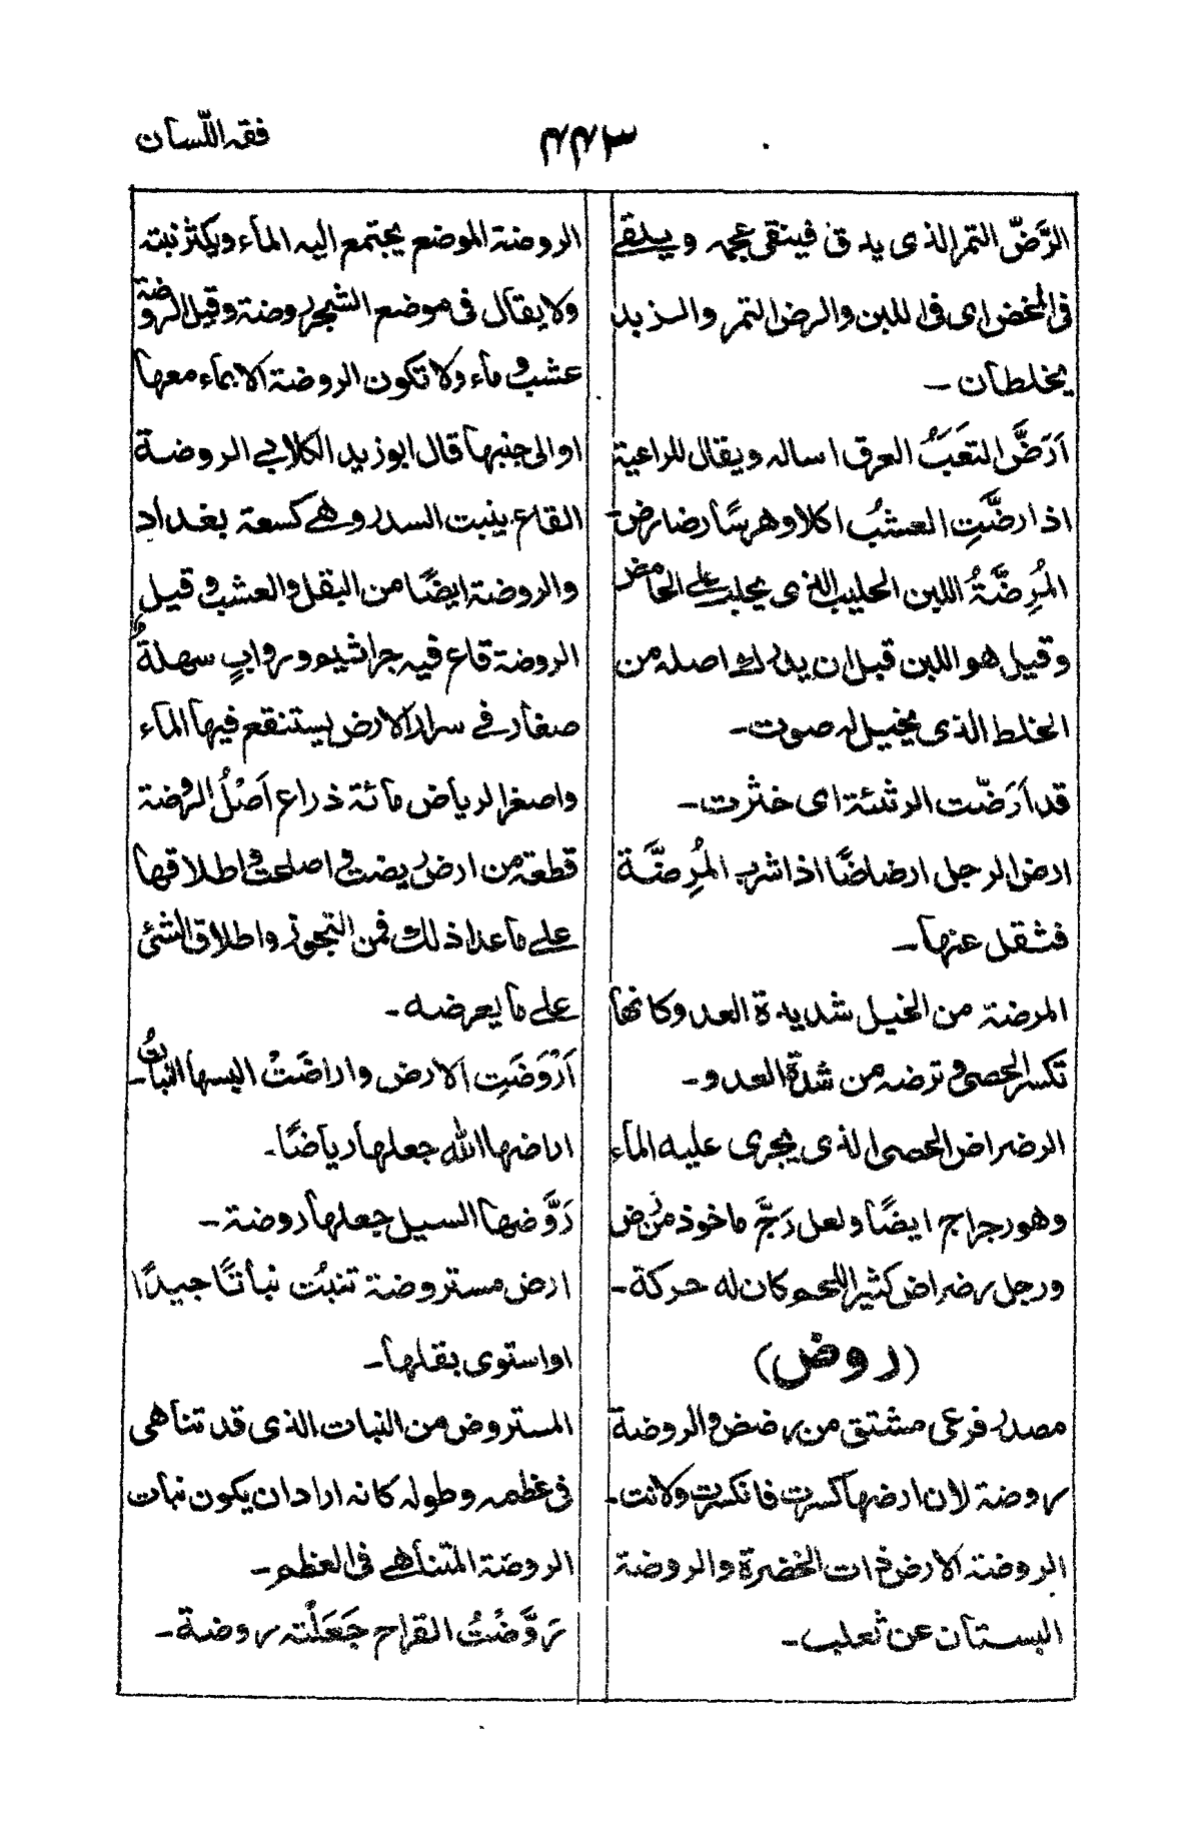 فقه اللّسان
۳۴۳
الرَّضّ التمر الذى يدق فينقى عجمه ويلقى
فى المخض اى فى اللبن والرض التمر والزبد
يخلطان ـ
اَرَضَّ التَعَبُ العرق اساله ويقال للراعية
اذا رضَّتِ العشبُ اكلا وهرسًا رضارض
المُرِضَّةُ اللبن الحليب الذى يحلب على الحامض
وقيل هو اللبن قبل ان يدرك اصله من
الخلط الذى يخيل له صوت ـ
قد اَرَضّت الرثئة اى خثرت ـ
ارض الرجل ارضاضًا اذا شرب المُرِضَّة
فثقل عنها ـ
المرضة من الخيل شديدة العدو كانها
تكسر الحصى وترضه من شدة العدو ـ
الرضراض الحصى الذى يجرى عليه الماء
وهو رجراج ايضًا ولعل رَجَّ ماخوذ من رض
ورجل رضراض كثير اللحم كان له حركة ـ
(روض)
مصدر فرعى مشتق من رضض والروضة
روضة لان ارضها كسرت فانكسرت ولانت ـ
الروضة الارض ذات الخضرة والروضة
البستان عن ثعلب ـ
الروضة الموضع يجتمع اليه الماء ويكثر نبته
ولا يقال فى موضع الشجر روضة وقيل الروضة
عشب و ماء ولا تكون الروضة الا بماء معها
او الى جنبها قال ابو زيد الكلابي الروضة
القاع ينبت السدر وهى كسعة بغداد
والروضة ايضًا من البقل والعشب وقيل
الروضة قاع فيه جراثيم وروابٍ سهلةٌ
صغار فى سرار الارض يستنقع فيها الماء
واصغر الرياض مائة ذراع اَصْلُ الروضة
قطعة من ارض ريضت و اصلحت و اطلاقها
على ما عدا ذلك فمن التجوز واطلاق الشئى
على ما يعرضه ـ
اَرْوَضَتِ الارض واراضَتْ البسها النباتُ ـ
اراضها الله جعلها رياضًا ـ
رَوَّضها السيل جعلها روضة ـ
ارض مستروضة تنبُت نباتًا جيدًا
او استوى بقلها ـ
المستروض من النبات الذى قد تناهى
فى عظمه وطوله كانه اراد ان يكون نبات
الروضة المتناهى فى العظم ـ
رَوَّضْتُ القراح جَعَلْته روضة ـ